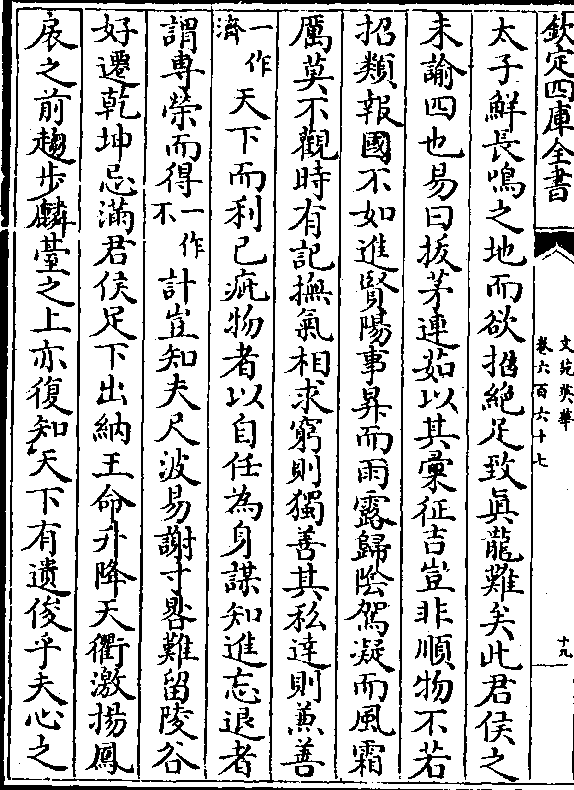 欽定四庫全書
文苑英華
卷六百六十七
十九
太子鮮長鳴之地而欲招絶足致眞龍難矣此君侯之
未諭四也易曰拔茅連茹以其彚征吉豈非順物不若
招類報國不如進賢陽事昇而雨露歸隂駕凝而風霜
厲莫不觀時有記撫氣相求窮則獨善其私達則兼善
一作濟天下而利己疵物者以自任為身謀知進忘退者
謂専榮而得一作不計豈知夫尺波易謝寸晷難留陵谷
好遷乾坤忌滿君侯足下出納王命升降天衢激揚鳳
扆之前趨步麟臺之上亦復知天下有遺俊乎夫心之